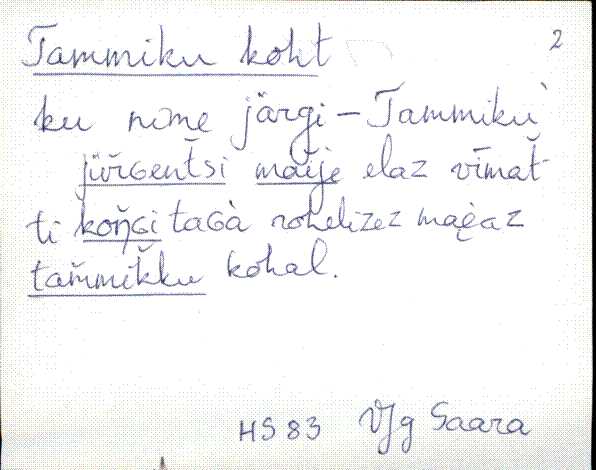 Tammiku koht
2
ku nime järgi – Tammiku`
jü̆rɢentsi maije elaz vīmat-
ti koŋ̆ɢi taɢà rohelizez majaz
tam̆mik̆ku kohal.
HS 83 VJg Saara